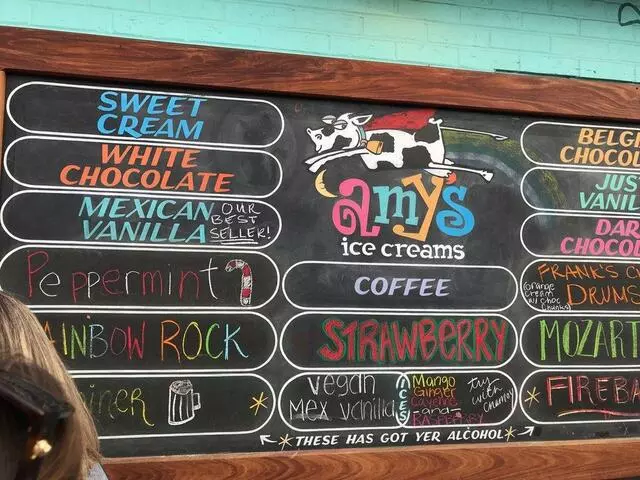 SWEET
CREAM
WHITE
CHOCOLATE
MEXICAN
VANILLA
OUR
BEST
SELLER!
Peppermint
AINBOW ROCK
iner
amys
ice creams
COFFEE
STRAWBERRY
Vegan
Mex vanilla
ICES
Mango
Ginger
-and-
RASPBERRY
try
with
THESE HAS GOT YER ALCOHOL
BELGI
CHOCOL
JUS
VANIL
DAR
CHOCOL
FRANK'S O
DRUMS
(orange
cream
w/ choc
chunks)
MOZART
FIREBA